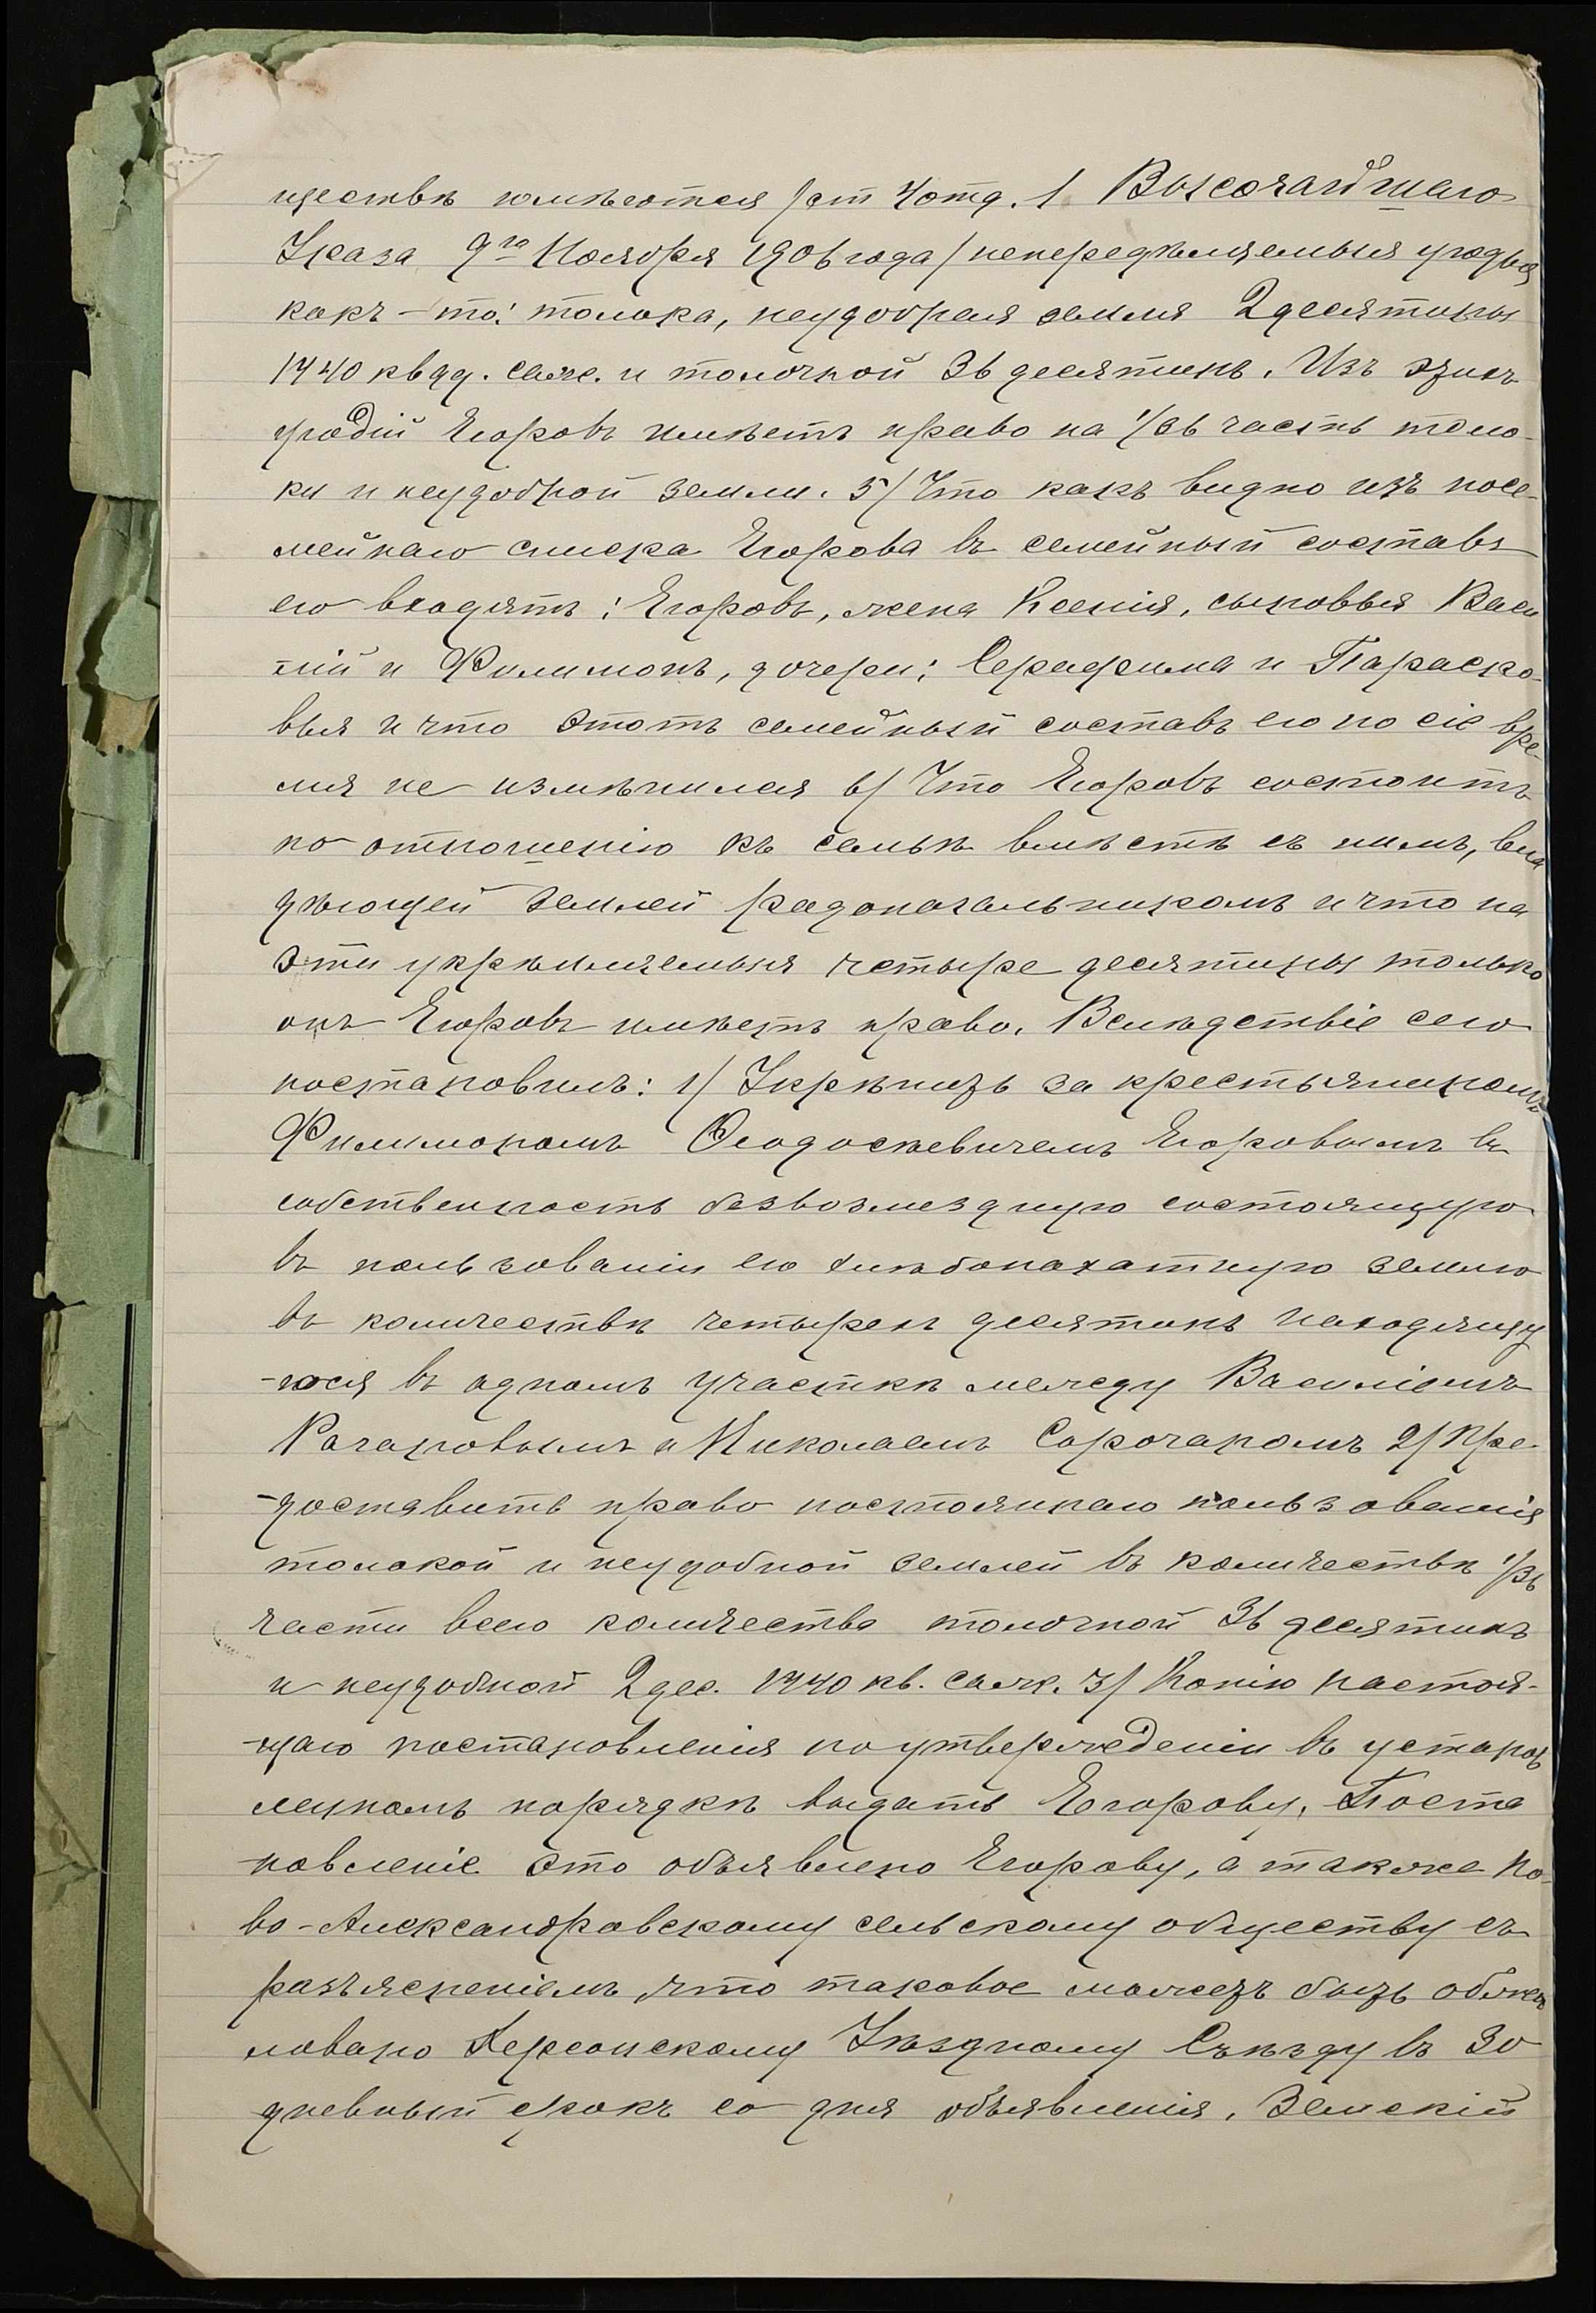 ществѣ имѣются /ст 4 отд. 1 Высочайшаго
Указа 9го Ноября 1906 года/ непередѣляемыя угодья
какъ-то: толока, неудобная земля 2 десятины
1740 квад. саж. и толочной 36 десятинъ. Изъ этихъ
угодій Егоровъ имѣетъ право на 1/36 часть толо-
ки и неудобной земли. 5/ Что какъ видно изъ посе-
мейнаго списка Егорова въ семейный составъ
его входятъ: Егоровъ, жена Ксенія, сыновья Васи
лій и Филимонъ, дочери: Серафима и Параско-
вья и что этотъ семейный составъ его по сіе вре-
мя не измѣнился 6/ Что Егоровъ состоитъ
по отношенію къ семьѣ вмѣстѣ съ нимъ, вла
дѣющей землей радоначальникомъ и что на
эти укрѣпляемыя четыре десятины только
онъ Егоровъ имѣетъ право. Вслѣдствіе сего
постановилъ: 1/ Укрѣпить за крестьяниномъ
Филимономъ Ѳеодосіевичемъ Егоровымъ въ
собственность безвозмездную состоящую
въ пользованіи его хлѣбопахатную землю
въ количествѣ четырехъ десятинъ находящу
-юся въ одномъ участкѣ между Василіемъ
Рачановымъ и Николаемъ Сорочаномъ 2/ Пре-
-доставить право постояннаго пользованія
толокой и неудобной землей въ количествѣ 1/36
части всего количества толочной 36 десятинъ
и неудобной 2 дес. 1740 кв. саж. 3/ Копію настоя-
-щаго постановленія по утвержденіи въ установ
ленномъ порядкѣ выдать Егорову. Поста
-новленіе это объявлено Егорову, а также Но-
во-Александровскому сельскому обществу съ
разъясненіемъ, что таковое можетъ быть обжа
ловано Херсонскому Уѣздному Съѣзду въ 30
дневный срокъ со дня объявленія. Земскій